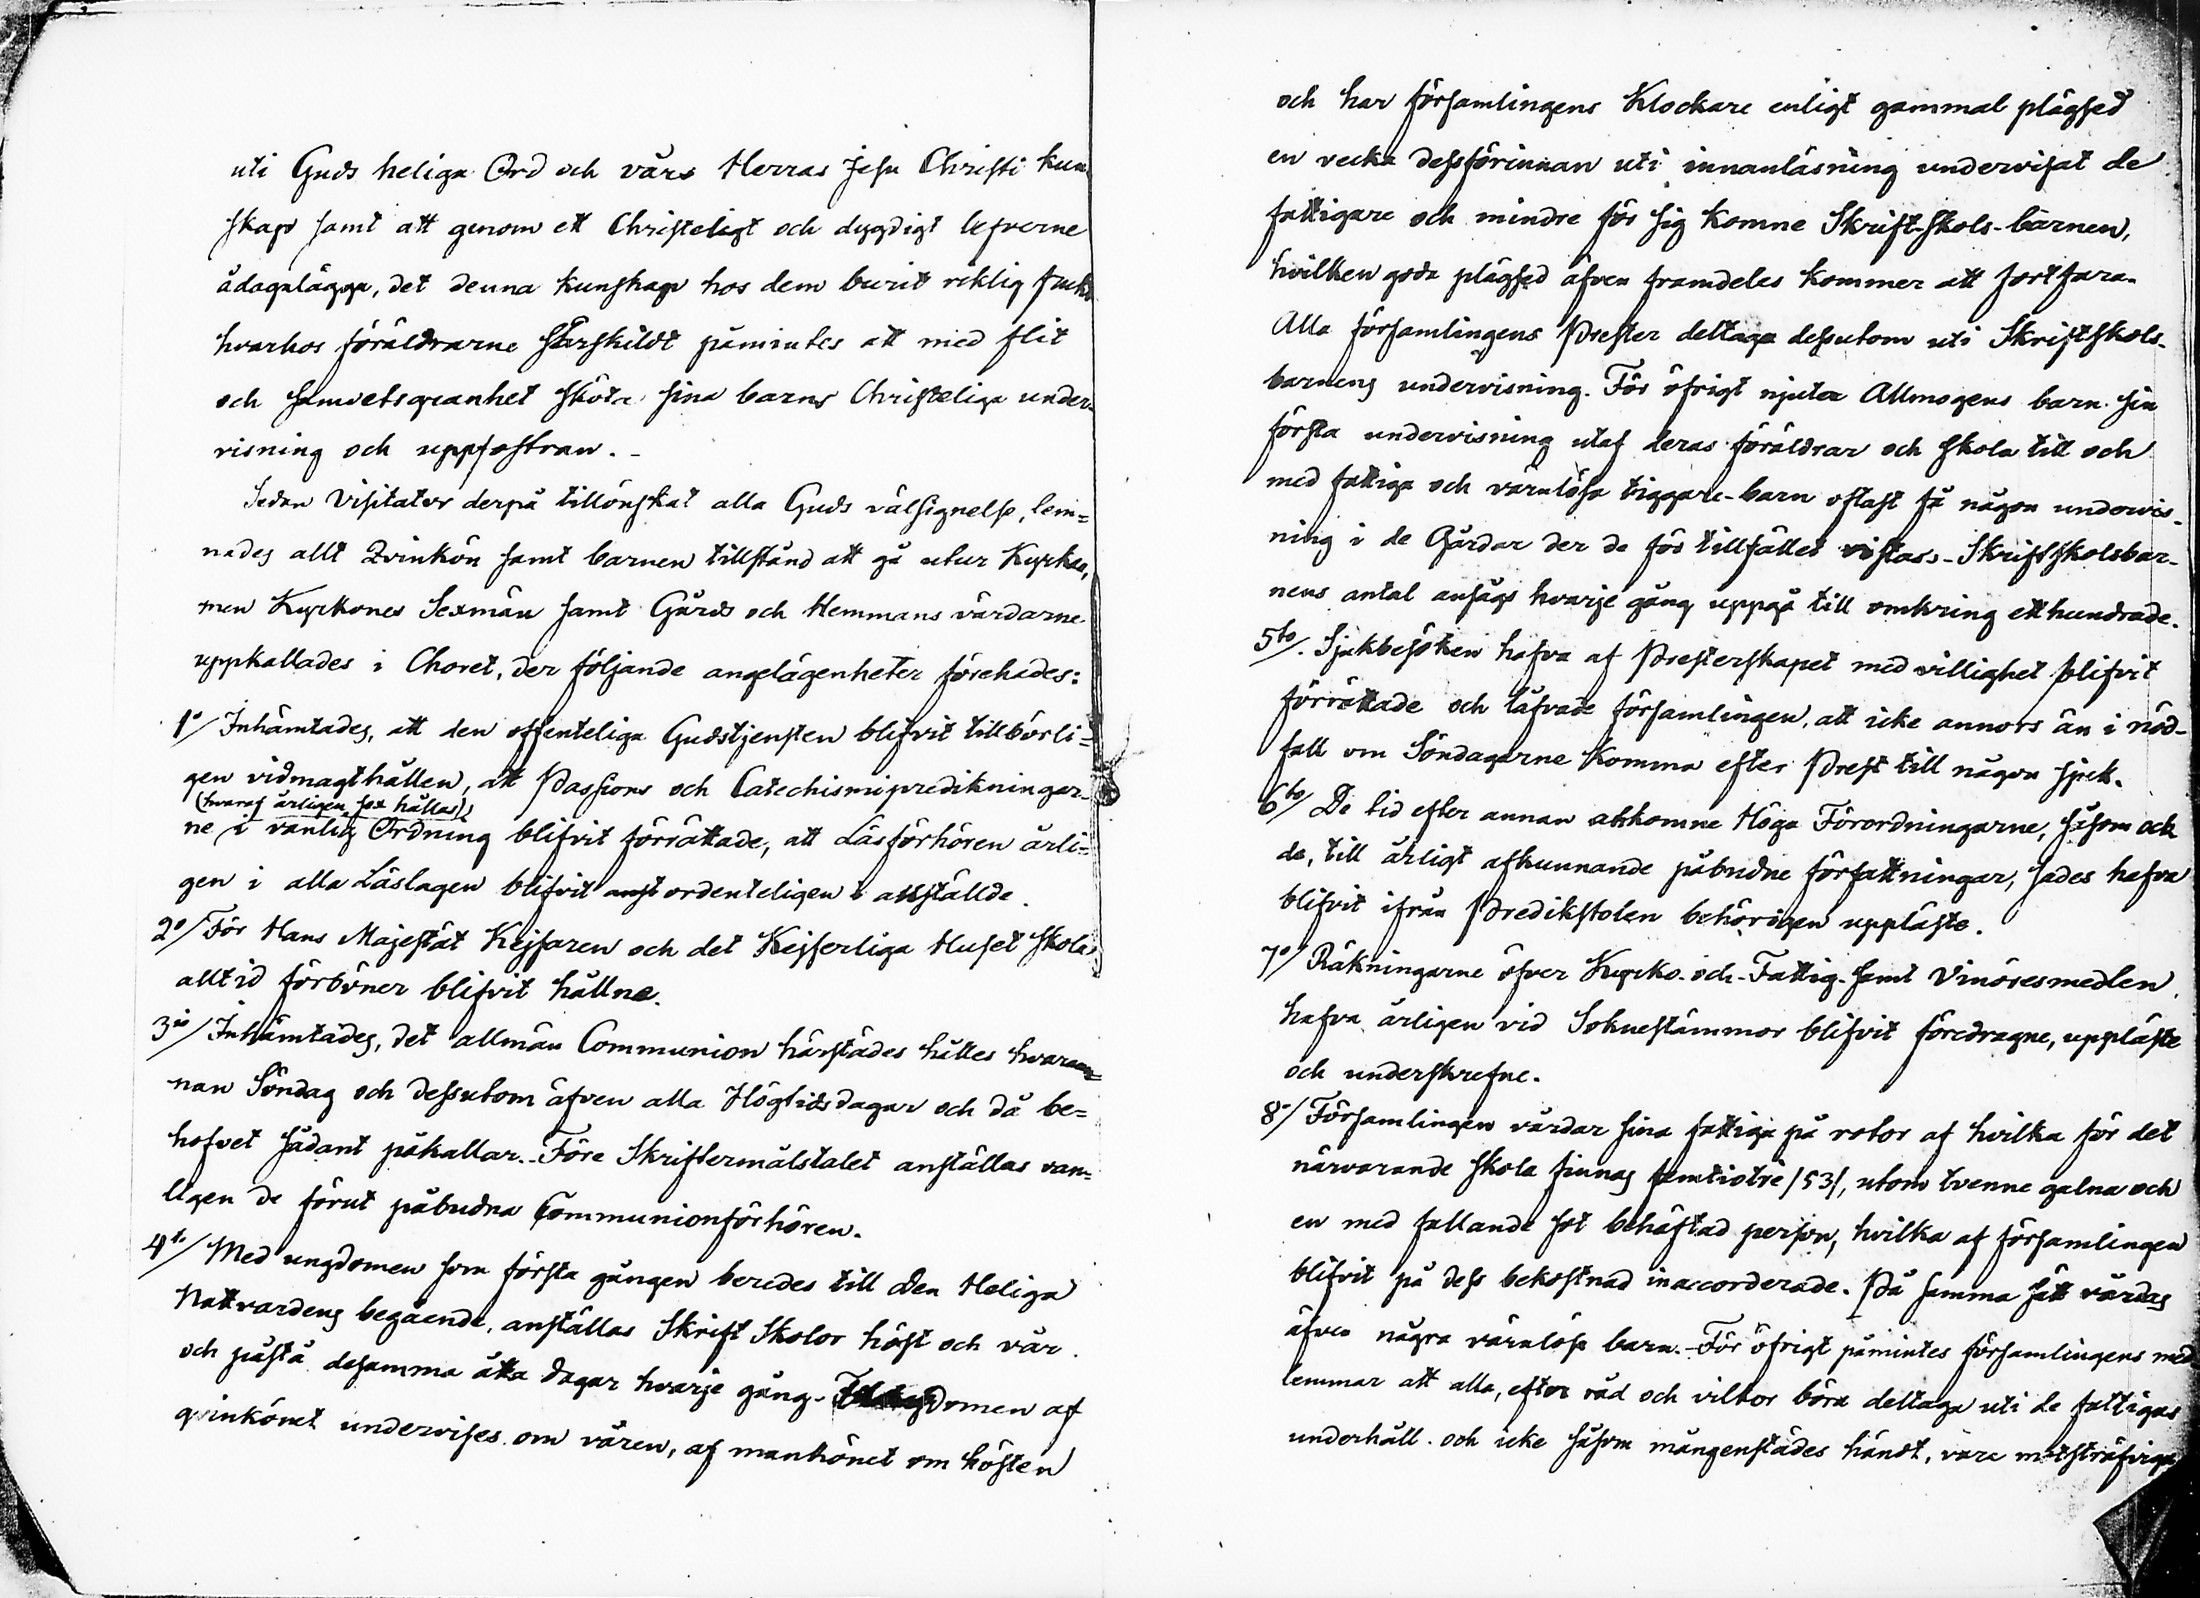 uti Guds heliga Ord och vårs Herras Jesu Christi kun
skap samt att genom ett Christeligt och dygdigt lefverne
ådagalägga, det denna kunskap hos dem burit riklig frukt
hvarhos föräldrarne särskildt påmintes att med flit
och samvetsgranhet sköta sina barns Christeliga under-
visning och uppfostran. -
Sedan Visitator derpå tillönskat alla Guds välsignelse, lem=
nades allt Qvinkön samt barnen tillstånd att gå utur Kyrkan,
men Kyrkones Sexmän samt Gårds och Hemmans värdarne
uppkallades i Choret, der följande angelägenheter förehades:
1º/ Inhämtades, att den offenteliga Gudstjensten blifvit tillbörli=
gen vidmagthållen, att Passions och Catechismipredikningar-
(hvaraf årligen sex hållas)
ne i vanlig Ordning blifvit förrättade, att Läsförhören årli=
gen i alla Läslagen blifvit anst ordenteligen anställde.
2º/ För Hans Majestät Kejsaren och det Kejserliga Huset skola
alltid förböner blifvit hållne.
3io/ Inhämtades, det allmän Communion härstädes hålles hvaran=
nan Söndag och dessutom äfven alla Högtidsdagar och då be=
hofvet sådant påkallar. - Före Skriftermålstalet anställas van-
ligen de förut påbudna Communionförhören.
4to/ Med ungdomen som första gången beredes till den Heliga
Nattvardens begående, anställas Skrift Skolor höst och vår
och påstå desamma åtta dagar hvarje gång. - domen af
qvinkönet undervises om våren, af mankönet om hösten
och har församlingens Klockare enligt gammal plägsed
en vecka dessförinnan uti innanläsning undervisat de
fattigare och mindre för sig komne Skrift-skols-barnen,
hvilken goda plägsed äfven framdeles kommer att fortfara.
Alla församlingens Prester deltaga dessutom uti Skriftskols-
barnens undervisning. För öfrigt njuta Allmogens barn sin
första undervisning utaf deras föräldrar och skola till och
med fattiga och värnlösa tiggare-barn oftast få någon undervis-
ning i de Gårdar der de för tillfället vistas. - Skriftskolsbar-
nens antal ansågs hvarje gång uppgå till omkring etthundrade.
5to/. Sjukbesöken hafva af Presterskapet med villighet blifvit
förrättade och låfvade församlingen, att icke annors än i nöd-
fall om Söndagarne komma efter Prest till någon sjuk.
6to/ De tid efter annan ankomne Höga Förordningarne, såsom ock
de, till årligt afkunnande påbudne författningar, sades hafva
blifvit ifrån Predikstolen behörigen uppläste.
7º/ Räkningarne öfver Kyrko- och Fattig- samt Vinöresmedlen
hafva årligen vid Sokneståmmor blifvit föredragne, uppläste
och underskrefne.
8º/ Församlingen vårdar sina fattiga på rotor af hvilka för det
närvarande skola finnas femtiotre /53/, utom tvenne galna och
en med fallande sot behäftad person, hvilka af församlingen
blifvit på dess bekostnad inaccorderade. På samma sätt vårdas
äfven några värnlösa barn. - För öfrigt påmintes församlingens med
lemmar att alla, efter råd och vilkor böra deltaga uti de fattigas
underhåll och icke såsom mångenstädes händt, vara motsträfviga